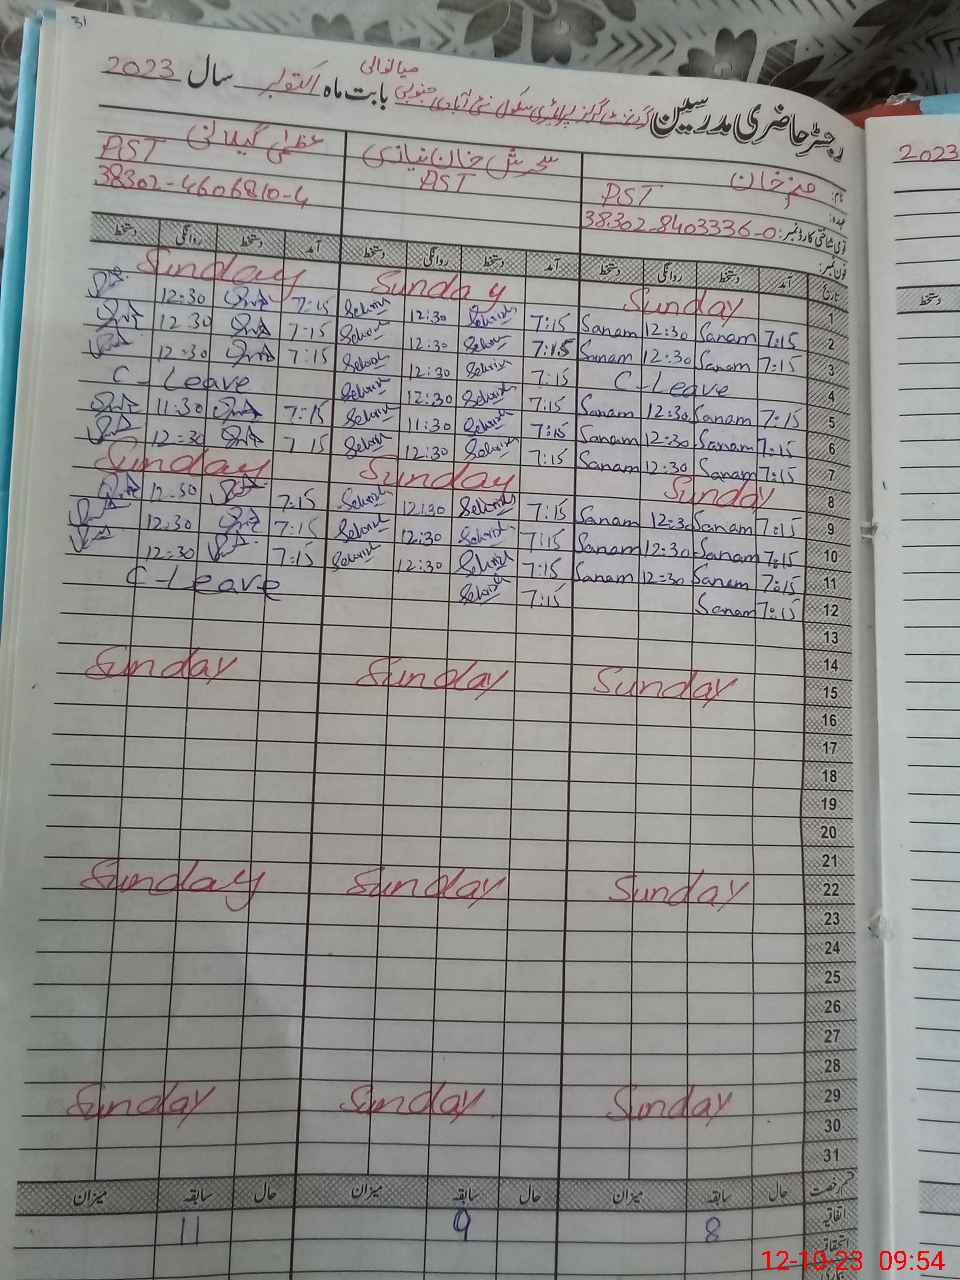 31
رجسٹر حاضری مدرسین گورنمنٹ گرلز پرائمری سکول نئی آبادی جنوبی میانوالی بابت ماہ اکتوبر سال 2023
نام: صنم خان سحرش خان نیازی عظمیٰ گیلانی
عہدہ: PST PST PST
قومی شناختی کارڈ نمبر: 38302-8403336-0 38302-4606810-4
فون نمبر:
تاریخ آمد دستخط روانگی دستخط آمد دستخط روانگی دستخط آمد دستخط روانگی دستخط
1 Sunday Sunday Sunday
2 7:15 Sanam 12:30 Sanam 7:15 Sehrish 12:30 Sehrish 7:15 12:30
3 7:15 Sanam 12:30 Sanam 7:15 Sehrish 12:30 Sehrish 7:15 12:30
4 C-Leave 7:15 Sehrish 12:30 Sehrish 7:15 12:30
5 7:15 Sanam 12:30 Sanam 7:15 Sehrish 12:30 Sehrish C-Leave
6 7:15 Sanam 12:30 Sanam 7:15 Sehrish 11:30 Sehrish 7:15 11:30
7 7:15 Sanam 12:30 Sanam 7:15 Sehrish 12:30 Sehrish 7 15 12:30
8 Sunday Sunday Sunday
9 7:15 Sanam 12:30 Sanam 7:15 Sehrish 12:30 Sehrish 7:15 12:30
10 7:15 Sanam 12:30 Sanam 7:15 Sehrish 12:30 Sehrish 7:15 12:30
11 7:15 Sanam 12:30 Sanam 7:15 Sehrish 12:30 Sehrish 7:15 12:30
12 7:15 Sanam 7:15 Sehrish C-Leave
13
14
15 Sunday Sunday Sunday
16
17
18
19
20
21
22 Sunday Sunday Sunday
23
24
25
26
27
28
29 Sunday Sunday Sunday
30
31
قسم رخصت حال سابقہ میزان حال سابقہ میزان حال سابقہ میزان
اتفاقیہ 8 9 11
استحقاقی
2023
دستخط
12-10-23 09:54